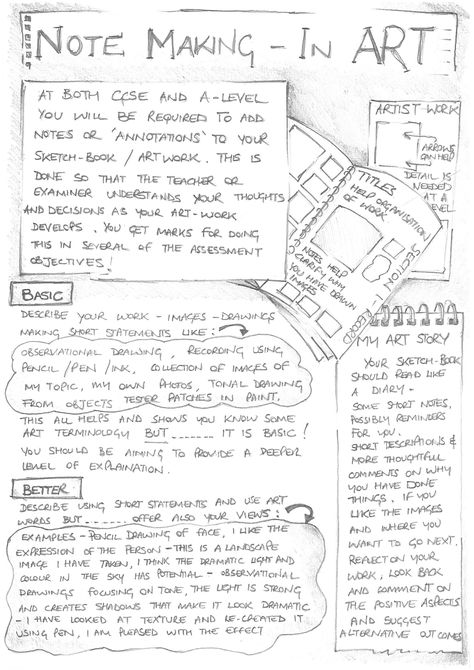 NOTE MAKING - IN ART
AT BOTH GCSE AND A-LEVEL
YOU WILL BE REQUIRED TO ADD
NOTES OR 'ANNOTATIONS' TO YOUR
SKETCH-BOOK / ARTWORK. THIS IS
DONE SO THAT THE TEACHER OR
EXAMINER UNDERSTANDS YOUR THOUGHTS
AND DECISIONS AS YOUR ART-WORK
DEVELOPS. YOU GET MARKS FOR DOING
THIS IN SEVERAL OF THE ASSESSMENT
OBJECTIVES!
ARTIST WORK
ARROWS
CAN HELP
DETAIL IS
NEEDED
AT A
LEVEL
TITLES
HELP ORGANISATION
OF WORK
NOTES HELP
CLARIFY WHY
YOU HAVE DRAWN
IMAGES
BASIC
DESCRIBE YOUR WORK - IMAGES - DRAWINGS
MAKING SHORT STATEMENTS LIKE:
OBSERVATIONAL DRAWING, RECORDING USING
PENCIL/PEN/INK, COLLECTION OF IMAGES OF
MY TOPIC, MY OWN PHOTOS, TONAL DRAWING
FROM OBJECTS TESTER PATCHES IN PAINT.
THIS ALL HELPS AND SHOWS YOU KNOW SOME
ART TERMINOLOGY BUT ...... IT IS BASIC!
YOU SHOULD BE AIMING TO PROVIDE A DEEPER
LEVEL OF EXPLAINATION.
BETTER
DESCRIBE USING SHORT STATEMENTS AND USE ART
WORDS BUT ...... OFFER ALSO YOUR VIEWS:
EXAMPLES - PENCIL DRAWING OF FACE, I LIKE THE
EXPRESSION OF THE PERSON - THIS IS A LANDSCAPE
IMAGE I HAVE TAKEN, I THINK THE DRAMATIC LIGHT AND
COLOUR IN THE SKY HAS POTENTIAL - OBSERVATIONAL
DRAWINGS FOCUSING ON TONE, THE LIGHT IS STRONG
AND CREATES SHADOWS THAT MAKE IT LOOK DRAMATIC
- I HAVE LOOKED AT TEXTURE AND RE-CREATED IT
USING PEN, I AM PLEASED WITH THE EFFECT
MY ART STORY
YOUR SKETCH-BOOK
SHOULD READ LIKE
A DIARY -
SOME SHORT NOTES,
POSSIBLY REMINDERS
FOR YOU.
SHORT DESCRIPTIONS &
MORE THOUGHTFUL
COMMENTS ON WHY
YOU HAVE DONE
THINGS. IF YOU
LIKE THE IMAGES
AND WHERE YOU
WANT TO GO NEXT.
REFLECT ON YOUR
WORK, LOOK BACK
AND COMMENT ON
THE POSITIVE ASPECTS
AND SUGGEST
ALTERNATIVE OUTCOMES